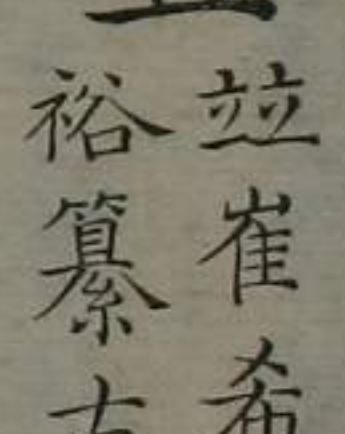 竝崔希
裕纂古